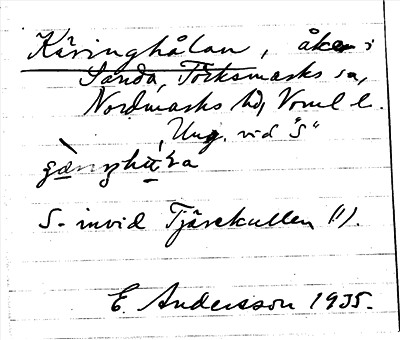 Käringhålan, åker i
Sanda, Töcksmarks sn,
Nordmarks hd, Vrml l.
Ung. vid "S"
S. invid Tjärekullen (1).
E. Andersson 1935.